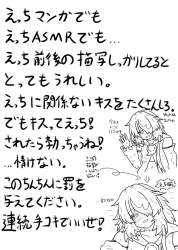 えっちマンガでも
えっちASMRでも…
えっち前後の描写しっかりしてると
とってもうれしい。
えっちに関係ないキスをたくさんしろ。
でもキスってえっち!
されたら勃っちゃうね!
…情けない。
このちんちんに罰を
与えてください。
連続手コキでいいぜ!